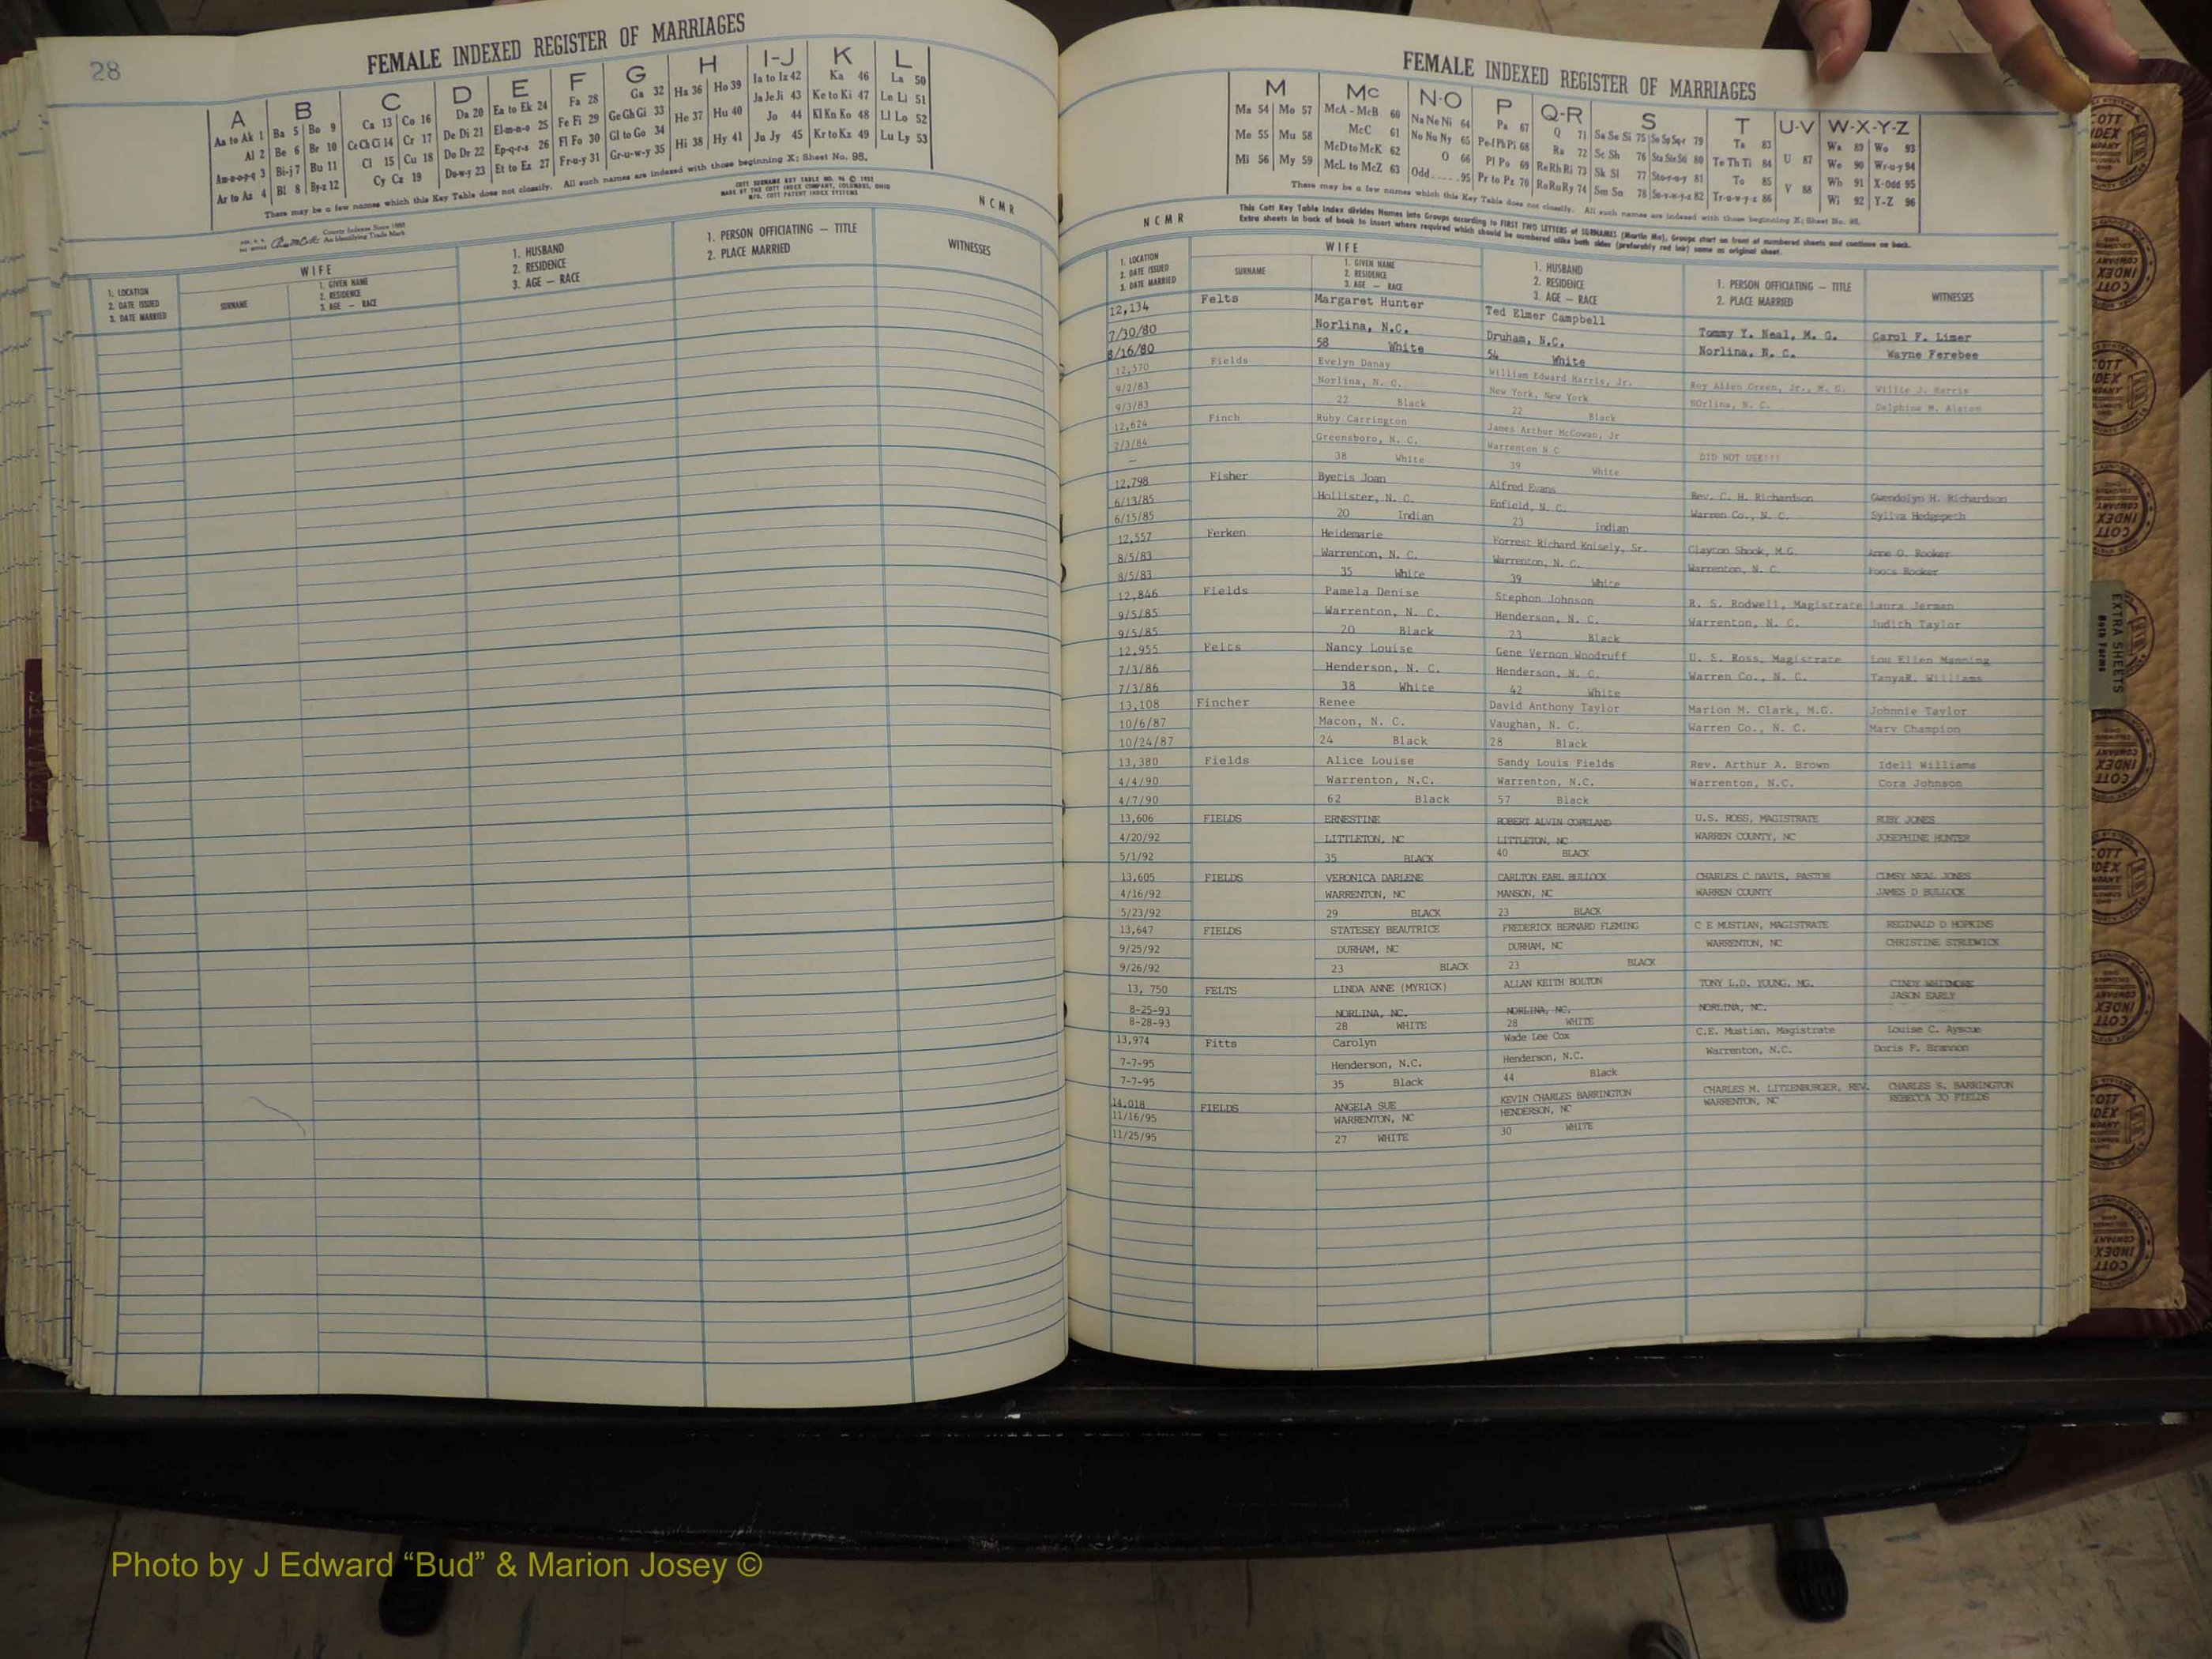 28
FEMALE INDEXED REGISTER OF MARRIAGES
A B C D E F G H I-J K L
Aa to Ak 1 Ba 5 Bo 9 Ca 13 Co 16 Da 20 Ea to Ek 24 Fa 28 Ga 32 Ha 36 Ho 39 Ia to Iz 42 Ka 46 La 50
Al 2 Be 6 Br 10 Ce Ch Ci 14 Cr 17 De Di 21 El-m-n-o 25 Fe Fi 29 Ge Gh Gi 33 He 37 Hu 40 Ja Je Ji 43 Ke to Ki 47 Le Li 51
Am-n-o-p-q 3 Bi-j 7 Bu 11 Cl 15 Cu 18 Do Dr 22 Ep-q-r-s 26 Fl Fo 30 Gl to Go 34 Hi 38 Hy 41 Jo 44 Kl Kn Ko 48 Ll Lo 52
Ar to Az 4 Bl 8 By-z 12 Cy Cz 19 Du-w-y 23 Et to Ez 27 Fr-u-y 31 Gr-u-w-y 35 Ju Jy 45 Kr to Kz 49 Lu Ly 53
There may be a few names which this Key Table does not classify. All such names are indexed with those beginning X; Sheet No. 95.
COTT SURNAME KEY TABLE NO. 96 © 1952
MADE BY THE COTT INDEX COMPANY, COLUMBUS, OHIO
MFG. COTT PATENT INDEX SYSTEMS
NCMR
County Indexes Since 1888
An Identifying Trade Mark
1. LOCATION
2. DATE ISSUED
3. DATE MARRIED
WIFE
SURNAME
1. GIVEN NAME
2. RESIDENCE
3. AGE — RACE
1. HUSBAND
2. RESIDENCE
3. AGE — RACE
1. PERSON OFFICIATING — TITLE
2. PLACE MARRIED
WITNESSES
FEMALE INDEXED REGISTER OF MARRIAGES
M Mc N-O P Q-R S T U-V W-X-Y-Z
Ma 54 Mo 57 McA - McB 60 Na Ne Ni 64 Pa 67 Q 71 Sa Se Si 75 So Sp Sq-r 79 Ta 83 Wa 89 Wo 93
Me 55 Mu 58 McC 61 No Nu Ny 65 Pe-f Ph Pi 68 Ra 72 Sc Sh 76 Sta Ste Sti 80 Te Th Ti 84 U 87 We 90 Wr-u-y 94
Mi 56 My 59 McD to McK 62 O 66 Pl Po 69 Re Rh Ri 73 Sk Sl 77 Sto-r-u-y 81 To 85 Wh 91 X-Odd 95
McL to McZ 63 Odd.....95 Pr to Pz 70 Ro Ru Ry 74 Sm Sn 78 Su-v-w-y-z 82 Tr-u-w-y-z 86 V 88 Wi 92 Y-Z 96
There may be a few names which this Key Table does not classify. All such names are indexed with those beginning X; Sheet No. 95.
NCMR
This Cott Key Table Index divides Names into Groups according to FIRST TWO LETTERS of SURNAMES (Martin Ma), Groups start on front of numbered sheets and continue on back.
Extra sheets in back of book to insert where required which should be numbered alike both sides (preferably red ink) same as original sheet.
1. LOCATION
2. DATE ISSUED
3. DATE MARRIED
WIFE
SURNAME
1. GIVEN NAME
2. RESIDENCE
3. AGE — RACE
1. HUSBAND
2. RESIDENCE
3. AGE — RACE
1. PERSON OFFICIATING — TITLE
2. PLACE MARRIED
WITNESSES
12,134 Felts Margaret Hunter Ted Elmer Campbell
7/30/80 Norlina, N.C. Druham, N.C. Tommy Y. Neal, M. G. Carol F. Limer
8/16/80 58 White 54 White Norlina, N. C. Wayne Ferebee
12,570 Fields Evelyn Danay William Edward Harris, Jr.
9/2/83 Norlina, N. C. New York, New York Roy Allen Green, Jr., M. G. Willie J. Harris
9/3/83 22 Black 22 Black NOrlina, N. C. Delphine M. Alston
12,624 Finch Ruby Carrington James Arthur McCowan, Jr
2/3/84 Greensboro, N. C. Warrenton N C
— 38 White 39 White DID NOT USE!!!
12,798 Fisher Byetis Joan Alfred Evans
6/13/85 Hollister, N. C. Enfield, N. C. Rev. C. H. Richardson Gwendolyn H. Richardson
6/15/85 20 Indian 23 Indian Warren Co., N. C. Syliva Hedgepeth
12,557 Ferken Heidemarie Forrest Richard Knisely, Sr.
8/5/83 Warrenton, N. C. Warrenton, N. C. Clayton Shook, M.G. Anne O. Rooker
8/5/83 35 White 39 White Warrenton, N. C. Foots Rooker
12,846 Fields Pamela Denise Stephon Johnson R. S. Rodwell, Magistrate Laura Jerman
9/5/85 Warrenton, N. C. Henderson, N. C. Warrenton, N. C. Judith Taylor
9/5/85 20 Black 23 Black
12,955 Felts Nancy Louise Gene Vernon Woodruff U. S. Ross, Magistrate Lou Ellen Manning
7/3/86 Henderson, N. C. Henderson, N. C. Warren Co., N. C. TanyaR. Williams
7/3/86 38 White 42 White
13,108 Fincher Renee David Anthony Taylor Marion M. Clark, M.G. Johnnie Taylor
10/6/87 Macon, N. C. Vaughan, N. C. Warren Co., N. C. Mary Champion
10/24/87 24 Black 28 Black
13,380 Fields Alice Louise Sandy Louis Fields Rev. Arthur A. Brown Idell Williams
4/4/90 Warrenton, N.C. Warrenton, N.C. Warrenton, N.C. Cora Johnson
4/7/90 62 Black 57 Black
13,606 FIELDS ERNESTINE ROBERT ALVIN COPELAND U.S. ROSS, MAGISTRATE RUBY JONES
4/20/92 LITTLETON, NC LITTLETON, NC WARREN COUNTY, NC JOSEPHINE HUNTER
5/1/92 35 BLACK 40 BLACK
13,605 FIELDS VERONICA DARLENE CARLTON EARL BULLOCK CHARLES C DAVIS, PASTOR CUMSY NEAL JONES
4/16/92 WARRENTON, NC MANSON, NC WARREN COUNTY JAMES D BULLOCK
5/23/92 29 BLACK 23 BLACK
13,647 FIELDS STATESEY BEAUTRICE FREDERICK BERNARD FLEMING C E MUSTIAN, MAGISTRATE REGINALD D HOPKINS
9/25/92 DURHAM, NC DURHAM, NC WARRENTON, NC CHRISTINE STRUDWICK
9/26/92 23 BLACK 23 BLACK
13, 750 FELTS LINDA ANNE (MYRICK) ALLAN KEITH BOLTON TONY L.D. YOUNG, MG. CINDY WHITMORE
JASON EARLY
8-25-93 NORLINA, NC. NORLINA, NC. NORLINA, NC.
8-28-93 28 WHITE 28 WHITE
13,974 Fitts Carolyn Wade Lee Cox C.E. Mustian, Magistrate Louise C. Ayscue
7-7-95 Henderson, N.C. Henderson, N.C. Warrenton, N.C. Doris F. Brannon
7-7-95 35 Black 44 Black
14,018 FIELDS ANGELA SUE KEVIN CHARLES BARRINGTON CHARLES M. LITZENBURGER, REV. CHARLES S. BARRINGTON
11/16/95 WARRENTON, NC HENDERSON, NC WARRENTON, NC REBECCA JO FIELDS
11/25/95 27 WHITE 30 WHITE
EXTRA SHEETS
Both Forms
Photo by J Edward “Bud” & Marion Josey ©